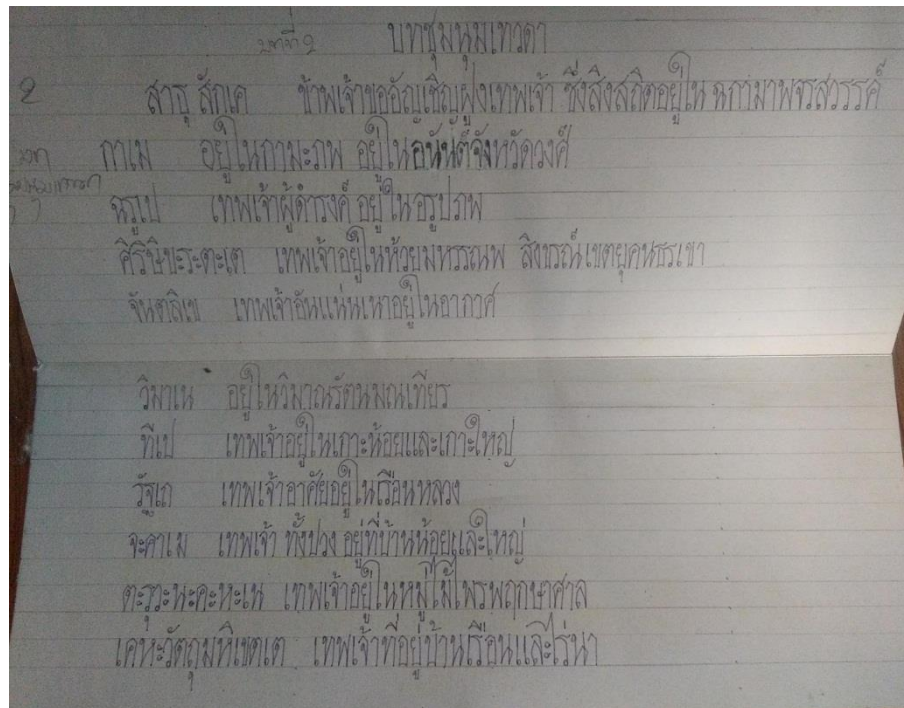 บทที่ 2 บทชุมนุมเทวดา
2 สาธุ สักเค ข้าพเจ้าขออัญเชิญฝูงเทพเจ้า ซึ่งสิงสถิตอยู่ใน ฉกามาพจรสวรรค์
กาเม อยู่ในกามะภพ อยู่ในอนันต์จังหวัดวงศ์
จรูเป เทพเจ้าผู้ดำรงค์ อยู่ในอรูปภพ
ศิริษิขะระตะเต เทพเจ้าอยู่ในห้วยมหรรณพ สิงขรณ์เขตยุคนธรเขา
จันตลิเข เทพเจ้าอันแน่นเนาอยู่ในอากาศ
วิมาเน อยู่ในวิมาณรัตนมณเทียร
ทีเป เทพเจ้าอยู่ในเกาะน้อยและเกาะใหญ่
รัฐเถ เทพเจ้าอาศัยอยู่ในเรือนหลวง
จะคาเม เทพเจ้า ทั้งปวง อยู่ที่บ้านน้อยและใหญ่
ตะรุวะนะคะหะเน เทพเจ้าอยู่ในหมู่ไม้ไพรพฤกษาศาล
เคหะวัตถุมหิเขตเต เทพเจ้าที่อยู่บ้านเรือนและไร่นา